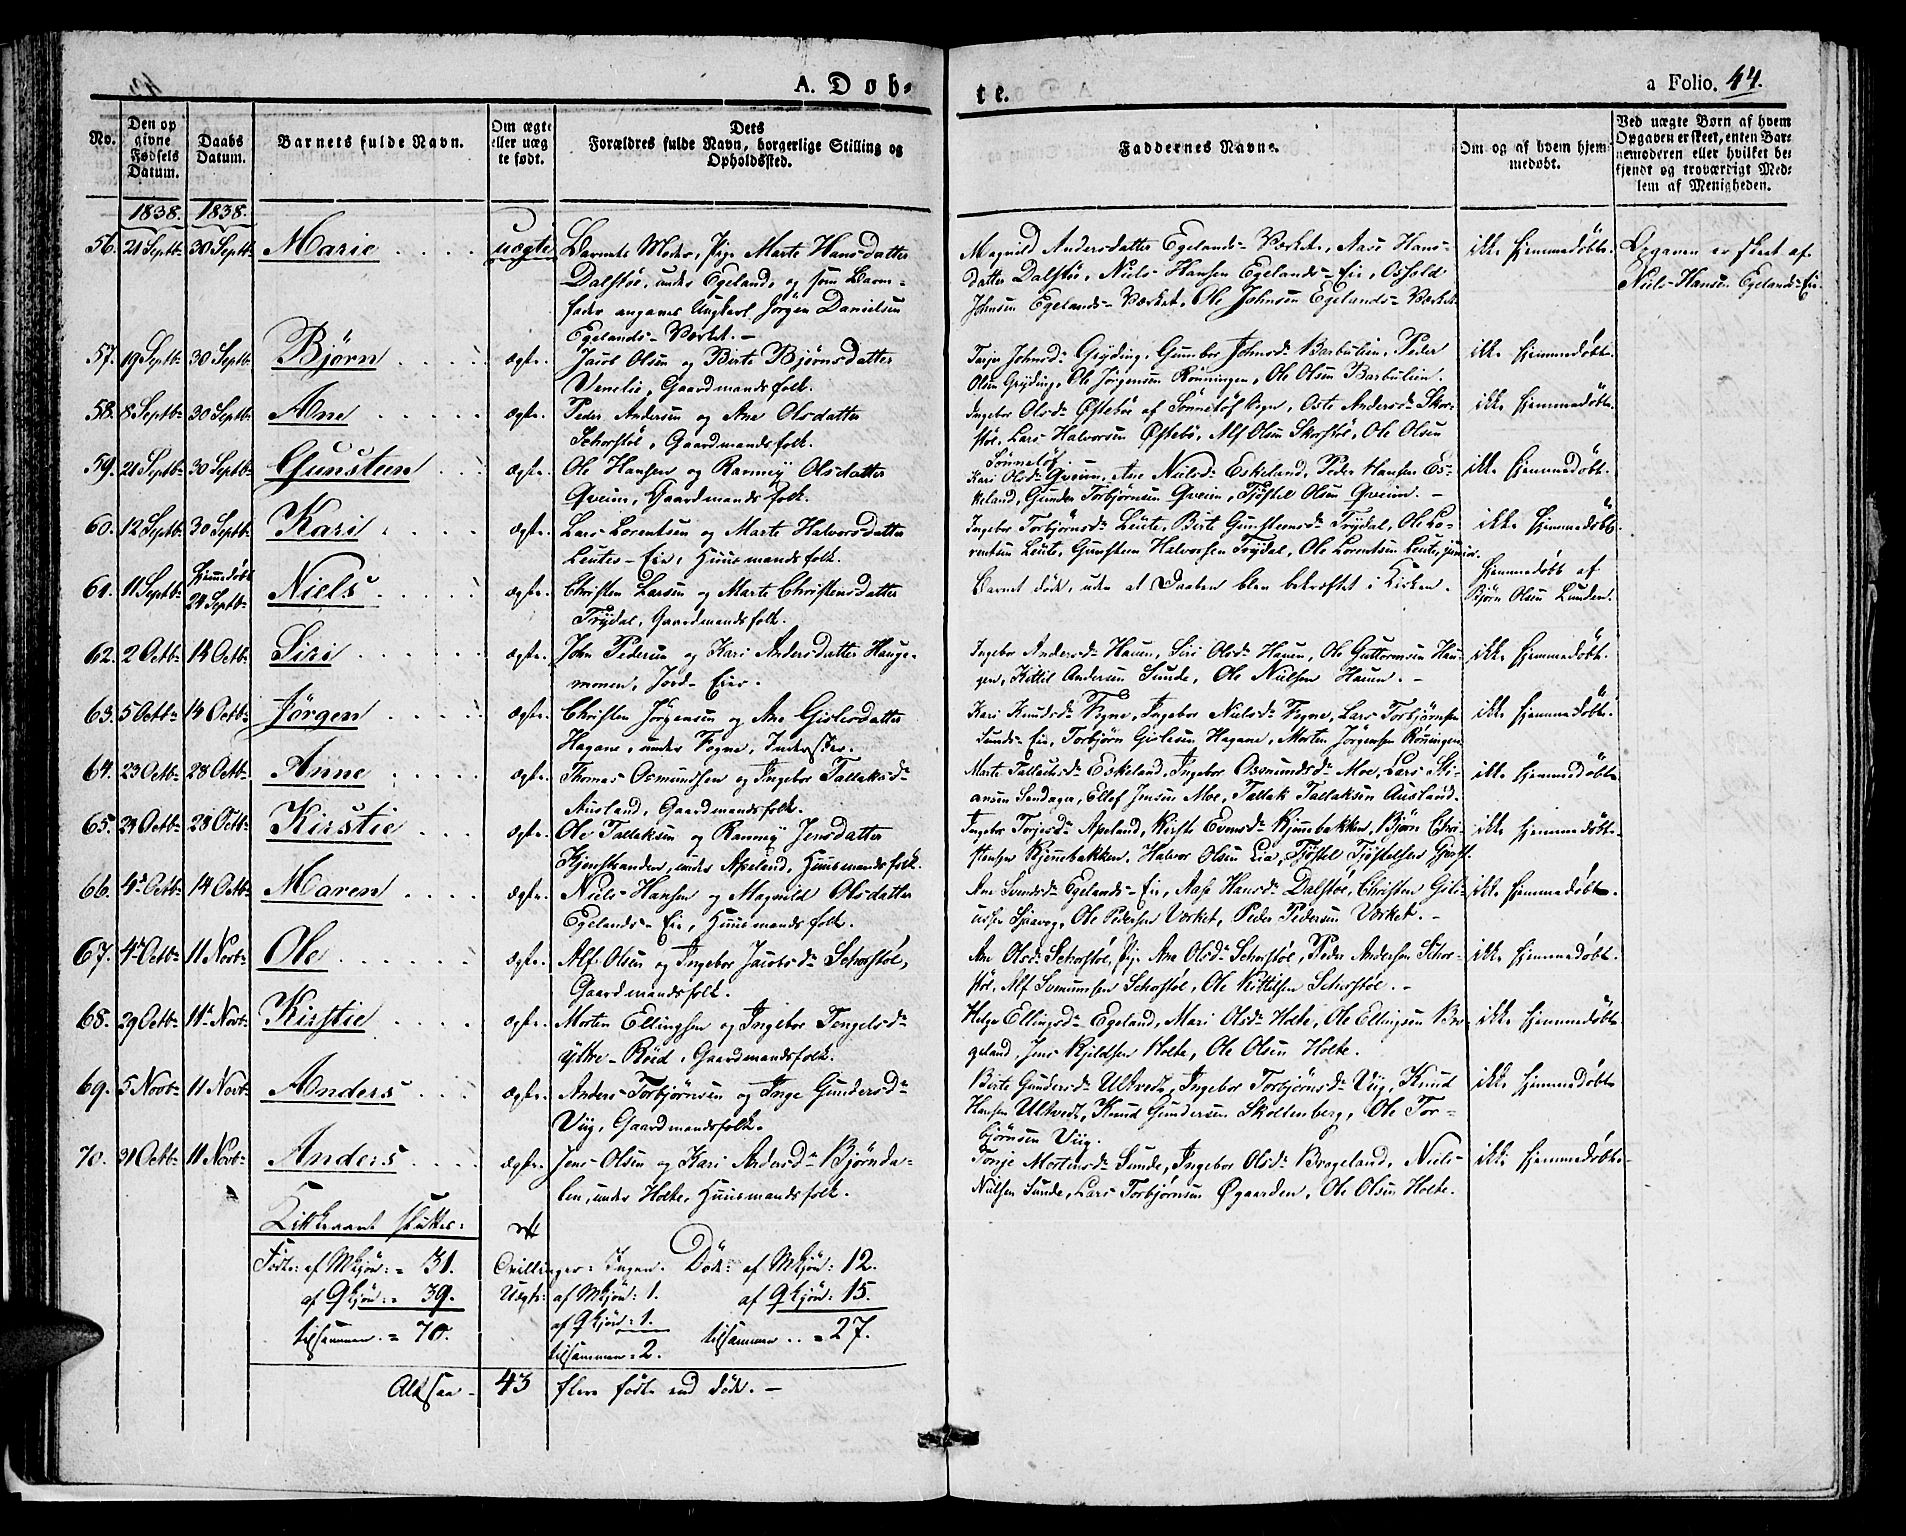 A. Døb-
te.
a Folio. 44.
No.
Den op
givne
Fødsels
Datum.
Daabs
Datum.
Barnets fulde Navn.
Om ægte
eller uæg
te født.
Dets
Forældres fulde Navn, borgerlige Stilling og
Opholdssted.
Faddernes Navne.
Om og af hvem hjem
medøbt.
Ved uægte Børn af hvem
Opgaven er skeet, enten Bar-
nemoderen eller hvilket be-
kjendt og troværdigt Med-
lem af Menigheden.
1838. 1838.
56. 21 Septb- 30 Septb- Marie uægte Barnets Moder, Pige Marte Hansdatter
Dalstöe, under Egeland, og som Barn-
fader angaves Ungkarl Jörgen Danielsen
Egelands-Værket.-
Magnild Andersdatter Egelands-Værket, Aase Hans-
datter Dalstöe, Niels Hansen Egelands-Eie, Osuld
Johnsen Egelands-Værket, Ole Johnsen Egelands-Værket
ikke hjemmedøbt.
Opgaven er skeet af
Niels Hansen Egelands-Eie.
57. 19 Septb- 30 Septb- Bjørn ægte. Jacob Olsen og Birte Bjørnsdatter
Venelie, Gaardmandsfolk.
Tarje Johnsd- Gryding, Gunbor Johnsd- Barbulien, Peder
Olsen Gryding, Ole Jörgensen Rönningen, Ole Olsen Barbulien.
ikke hjemmedøbt.
58. 8 Septb- 30 Septb- Ane ægte. Peder Andersen og Ane Olsdatter
Schorstöl, Gaardmandsfolk.
Ingebor Olsd- Östebö af Sönnelöf Sogn, Oste Andersd- Skor-
stöl, Lars Halvorsen Östebö, Alf Olsen Skorstöl, Ole Olsen
Sönnelöf
ikke hjemmedøbt.
59. 21 Septb- 30 Septb- Gunsteen ægte. Ole Hansen og Ranney Olsdatter
Qveim, Gaardmandsfolk.
Kari Olsd- Qveim, Ane Nielsd- Eskeland, Peder Hansen Es-
keland, Gunder Torbjörnsen Qveim, Tjöstel Olsen Qveim.-
ikke hjemmedøbt.
60. 12 Septb- 30 Septb- Kari ægte. Lars Lorentsen og Marte Halvorsdatter
Leutes-Eie, Huusmandsfolk.
Ingebor Torbjørnsd- Leute, Birte Gunsteensd- Trydal, Ole Lo-
rentsen Leute, Gunsteen Halvorsen Trydal, Ole Lorentsen Leute, junior.
ikke hjemmedøbt.
61. 11 Septb- Hjemmedøbt
24 Septb- Niels ægte. Christen Larsen og Marte Christensdatter
Trydal, Gaardmandsfolk.
Barnet døde, uden at Daaben blev bekræftet i Kirken.
hjemmedøbt af
Björn Olsen Lunden.
62. 2 Octb- 14 Octb- Siri ægte. John Pedersen og Kari Andersdatter Hauge-
monen, Jord-Eier.
Ingebor Andersd- Hauen, Siri Olsd- Hauen, Ole Guttormsen Hau-
gen, Kittil Andersen Sunde, Ole Nielsen Hauen.-
ikke hjemmedøbt.
63. 5 Octb- 14 Octb- Jørgen ægte. Christen Jörgensen og Ane Gislesdatter
Hagane, under Fogne, Inderster.
Kari Knudsd- Fogne, Ingebor Nielsd- Fogne, Lars Torbjörnsen
Sunds-Eie, Torbjörn Gislesen Hagane, Morten Jörgensen Rönningen
ikke hjemmedøbt.
64. 23 Octb- 28 Octb- Anne ægte. Thomas Osmundsen og Ingebor Tallaksd-
Ausland, Gaardmandsfolk.
Marte Tallaksd- Eskeland, Ingebor Osmundsd- Moe, Lars Sti-
ansen Sandager, Ellef Jensen Moe, Tallak Tallaksen Ausland.
ikke hjemmedøbt.
65. 24 Octb- 28 Octb- Kirstie ægte. Ole Tallaksen og Ranney Jensdatter
under Apeland, Huusmandsfolk.
Ingebor Torjesd- Apeland, Kirste Evensd- Kjennebakken, Björn Chri-
stensen Kjennebakken, Halvor Olsen Lia, Tjöstel Tjöstelsen
ikke hjemmedøbt.
66. 4de Octb- 14 Octb- Maren ægte. Niels Hansen og Magnild Olsdatter
Egelands-Eie, Huusmandsfolk.
Ane Svendsd- Egelands-Eie, Aase Hansd- Dalstöe, Christen
Ole Pedersen Værket, Peder Pedersen Værket.-
ikke hjemmedøbt.
67. 4de Octb- 11 Novb- Ole ægte. Alf Olsen og Ingebor Jacobsd- Schorstöl,
Gaardmandsfolk.
Ane Olsd- Schorstöl, Pige Ane Olsd- Schorstöl, Peder Andersen Schor-
stöl, Alf Schorstöl, Ole Kittilsen Schorstöl.-
ikke hjemmedøbt.
68. 29 Octb- 11te Novb- Kirstie ægte. Morten Ellingsen og Ingebor Tengelsd-
ytre-Röid, Gaardmandsfolk.
Helge Ellingsd- Egeland, Mari Olsd- Holte, Ole Ellingsen Bro-
geland, Jens Kjeldsen Holte, Ole Olsen Holte.
ikke hjemmedøbt.
69. 5 Novb- 11 Novb- Anders ægte. Anders Torbjørnsen og Inge Gundersd-
Viig, Gaardmandsfolk.
Birte Gundersd- Ulltvedt, Ingebor Torbjørnsd- Viig, Knud
Hansen Ulltvedt, Knud Gundersen Skollenberg, Ole Tor-
bjørnsen Viig.
ikke hjemmedøbt
70. 31 Octb- 11 Novb- Anders ægte. Jens Olsen og Kari Andersd- Bjørnda-
len, under Holte, Huusmandsfolk.
Tonje Mortensd- Sunde, Ingebor Olsd- Brogeland, Niels
Nielsen Sunde, Lars Torbjørnsen Øgaarden, Ole Olsen Holte.
ikke hjemmedøbt.
Kirkeaaret sluttes:
Födte: af Mkjön: = 31. Tvillinger: Ingen. Döde: af Mkjön: 12.
af Qkjön: = 39. Uægte: af Mkjön: 1. af Qkjön: 15.
af Qkjön: 1.
tilsammen = 70. tilsammen = 2. tilsammen = 27.
Altsaa - 43 flere födte end döde.-